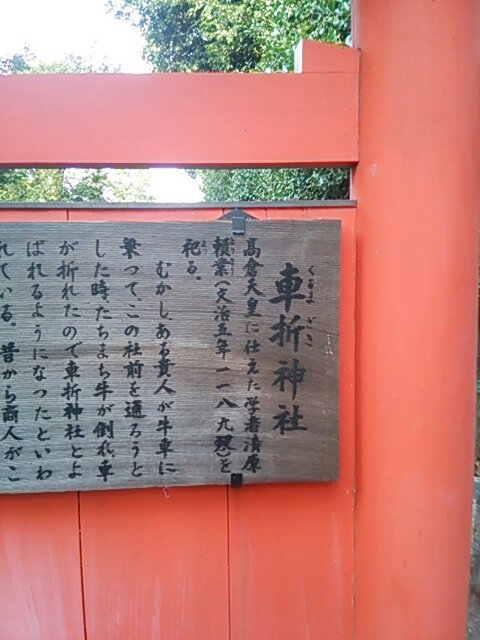 くるまざき
車折神社
高倉天皇に仕えた学者清原
頼業(文治五年一一八九歿)を
よりなり
祀る。
まつ
むかしある貴人が牛車に
乗つて、この社前を通ろうと
した時たちまち牛が倒れ、車
が折れたので車折神社とよ
ばれるようになつたといわ
れている。昔から商人がこ